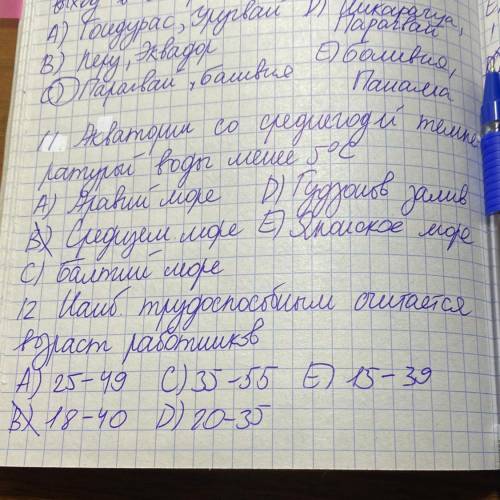 А) Гондурас, Уругвай D) Никарагуа,
Парагвай
В) Перу, Эквадор Е) Боливия,
С) Парагвай, Баливия Панама
11 Акватории со среднегодй темпе
ратурый воды менее 5°С
А) Аравий море D) Гудзонов залив
В) Средизем море Е) Японское море
С) балтий море
12 Наиб. трудоспособным считается
возраст работников
А) 25-49 С) 35-55 Е) 15-39
В) 18-40 D) 20-35